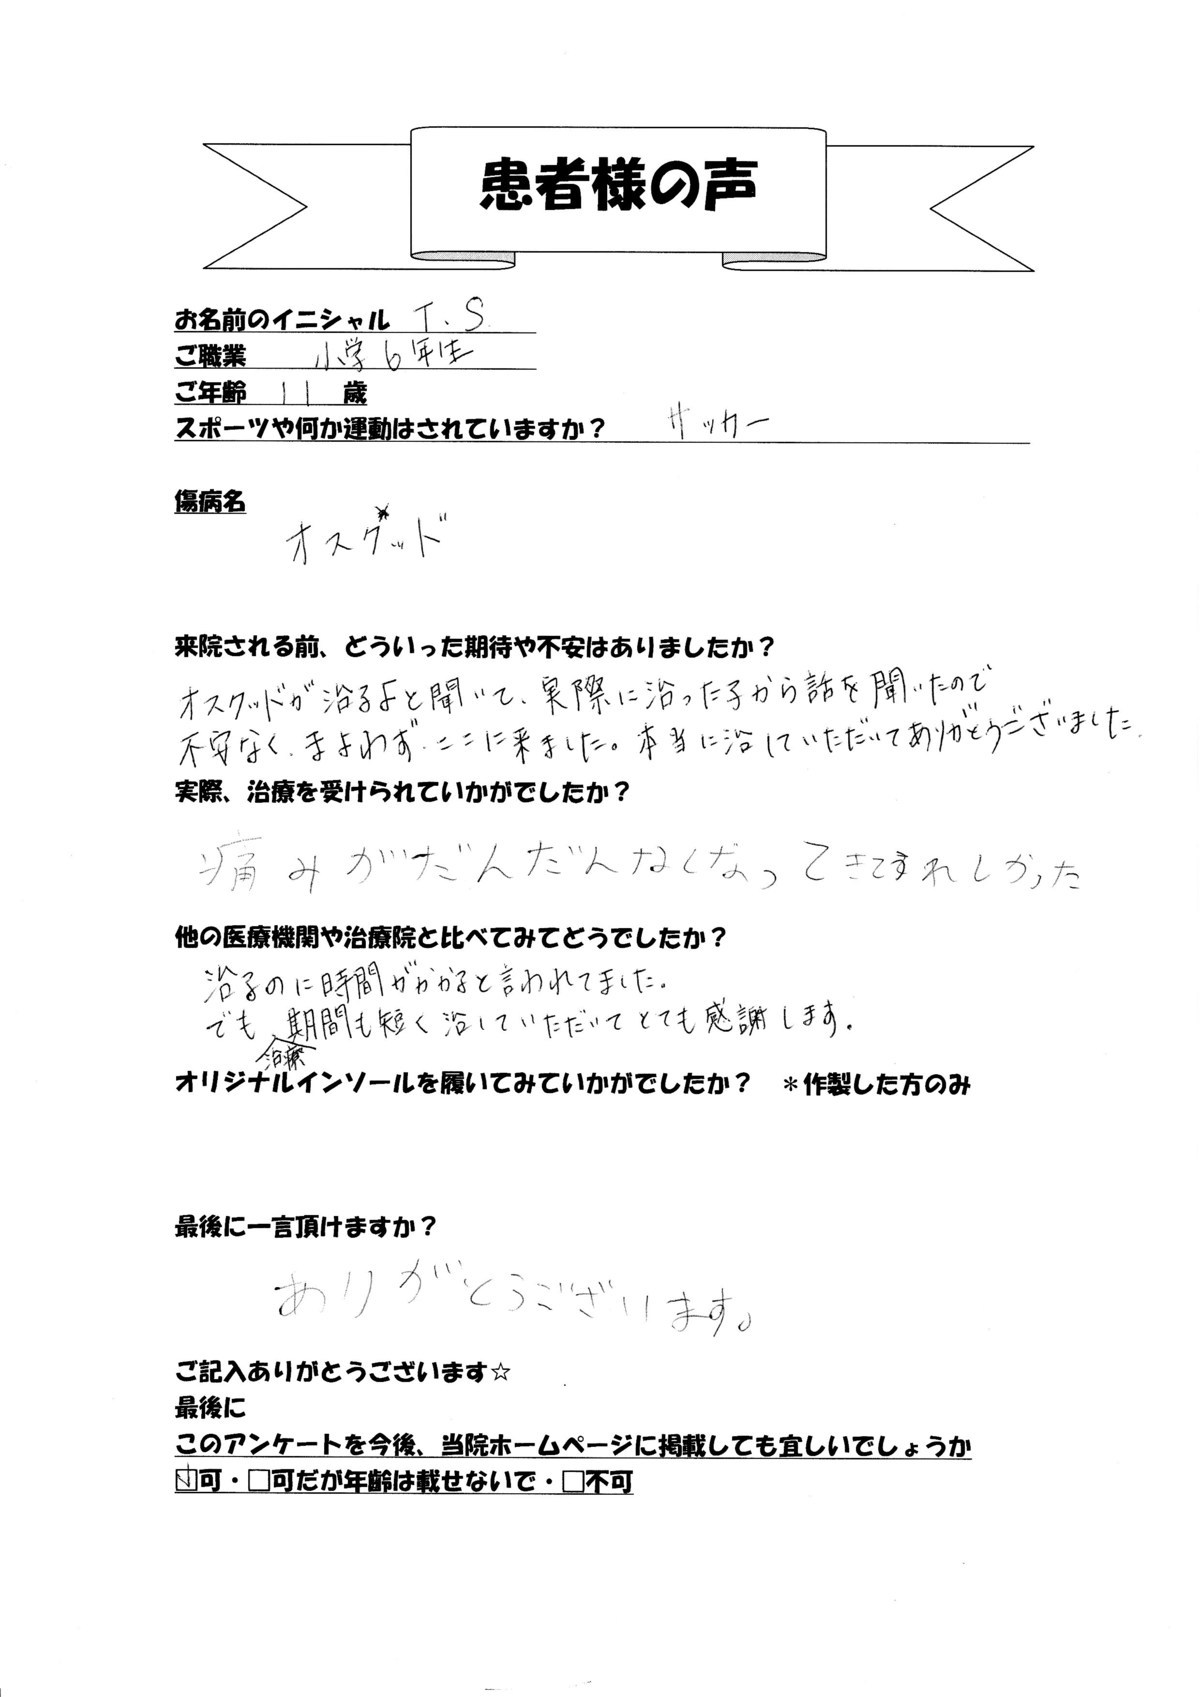 患者様の声
お名前のイニシャル T.S
ご職業 小学6年生
ご年齢 11 歳
スポーツや何か運動はされていますか? サッカー
傷病名
オスグッド
来院される前、どういった期待や不安はありましたか?
オスグッドが治るよと聞いて、実際に治った子から話を聞いたので
不安なく、まよわず、ここに来ました。本当に治していただいてありがとうございました.
実際、治療を受けられていかがでしたか?
痛みがだんだんなくなってきてすれしかった
他の医療機関や治療院と比べてみてどうでしたか?
治るのに時間がかかると言われてました。
でも、治療期間も短く治していただいてとても感謝します。
オリジナルインソールを履いてみていかがでしたか? *作製した方のみ
最後に一言頂けますか?
ありがとうございます。
ご記入ありがとうございます☆
最後に
このアンケートを今後、当院ホームページに掲載しても宜しいでしょうか
☑可・□可だが年齢は載せないで・□不可